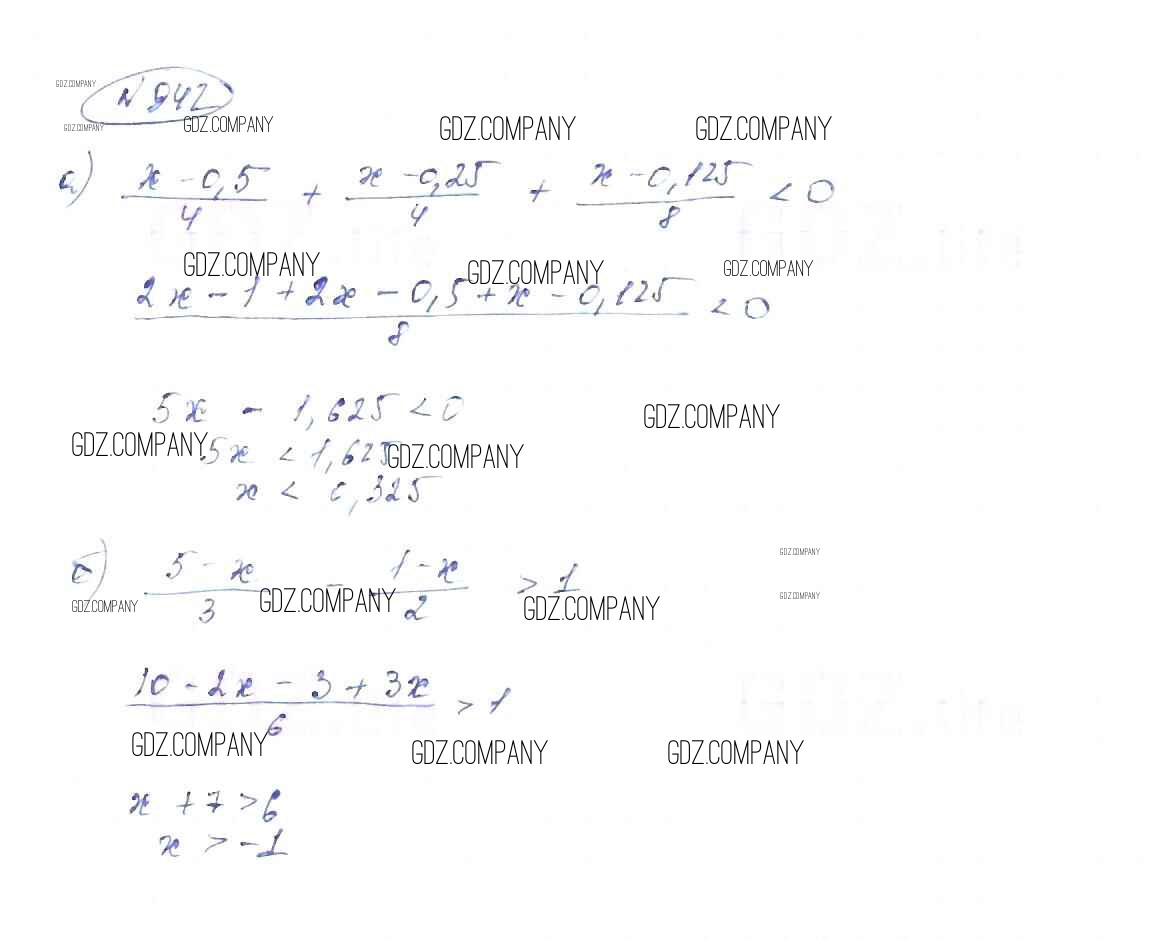 GDZ.COMPANY
N 942
GDZ.COMPANY GDZ.COMPANY GDZ.COMPANY GDZ.COMPANY
а) (x - 0,5)/4 + (x - 0,25)/4 + (x - 0,125)/8 < 0
GDZ.COMPANY GDZ.COMPANY GDZ.COMPANY
(2x - 1 + 2x - 0,5 + x - 0,125)/8 < 0
5x - 1,625 < 0
GDZ.COMPANY
GDZ.COMPANY 5x < 1,625 GDZ.COMPANY
x < 0,325
GDZ.COMPANY
б) (5 - x)/3 - (1 - x)/2 > 1
GDZ.COMPANY
GDZ.COMPANY GDZ.COMPANY GDZ.COMPANY
(10 - 2x - 3 + 3x)/6 > 1
GDZ.COMPANY GDZ.COMPANY GDZ.COMPANY
x + 7 > 6
x > -1